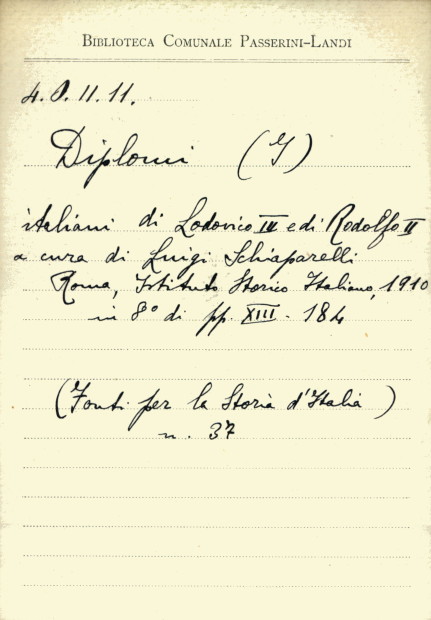 BIBLIOTECA COMUNALE PASSERINI-LANDI
4.O.II.11.
Diplomi (I)
italiani di Lodovico III e di Rodolfo II
a cura di Luigi Schiaparelli
Roma, Istituto Storico Italiano, 1910
in 8° di pp. XIII - 184
(Fonti per la Storia d'Italia)
n. 37